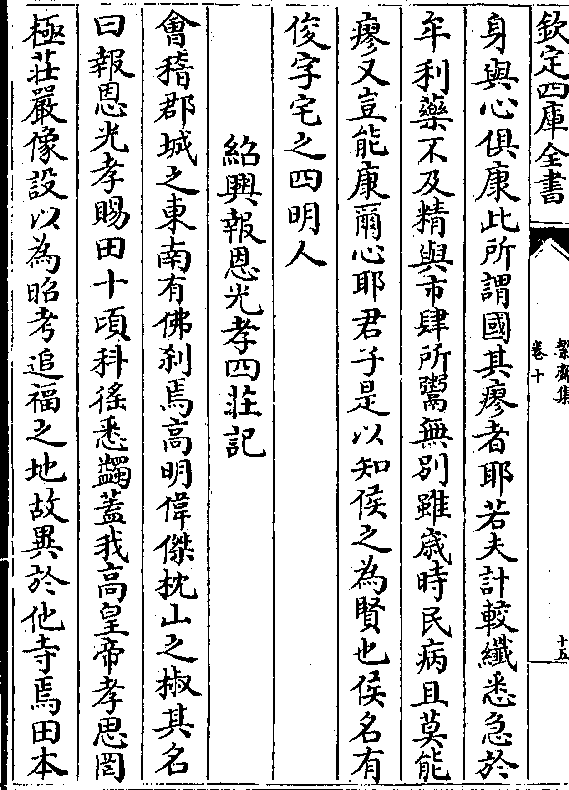 欽定四庫全書
絜齋集
卷十
十五
身與心俱康此所謂國其瘳者耶若夫計較纎悉急於
年利藥不及精與市肆所鬻無别雖歲時民病且莫能
瘳又豈能康爾心耶君子是以知侯之為賢也侯名有
俊字宅之四明人
紹興報恩光孝四莊記
會稽郡城之東南有佛刹焉高明偉傑枕山之椒其名
曰報恩光孝賜田十頃科徭悉蠲蓋我高皇帝孝思罔
極莊嚴像設以為昭考追福之地故異於他寺焉田本